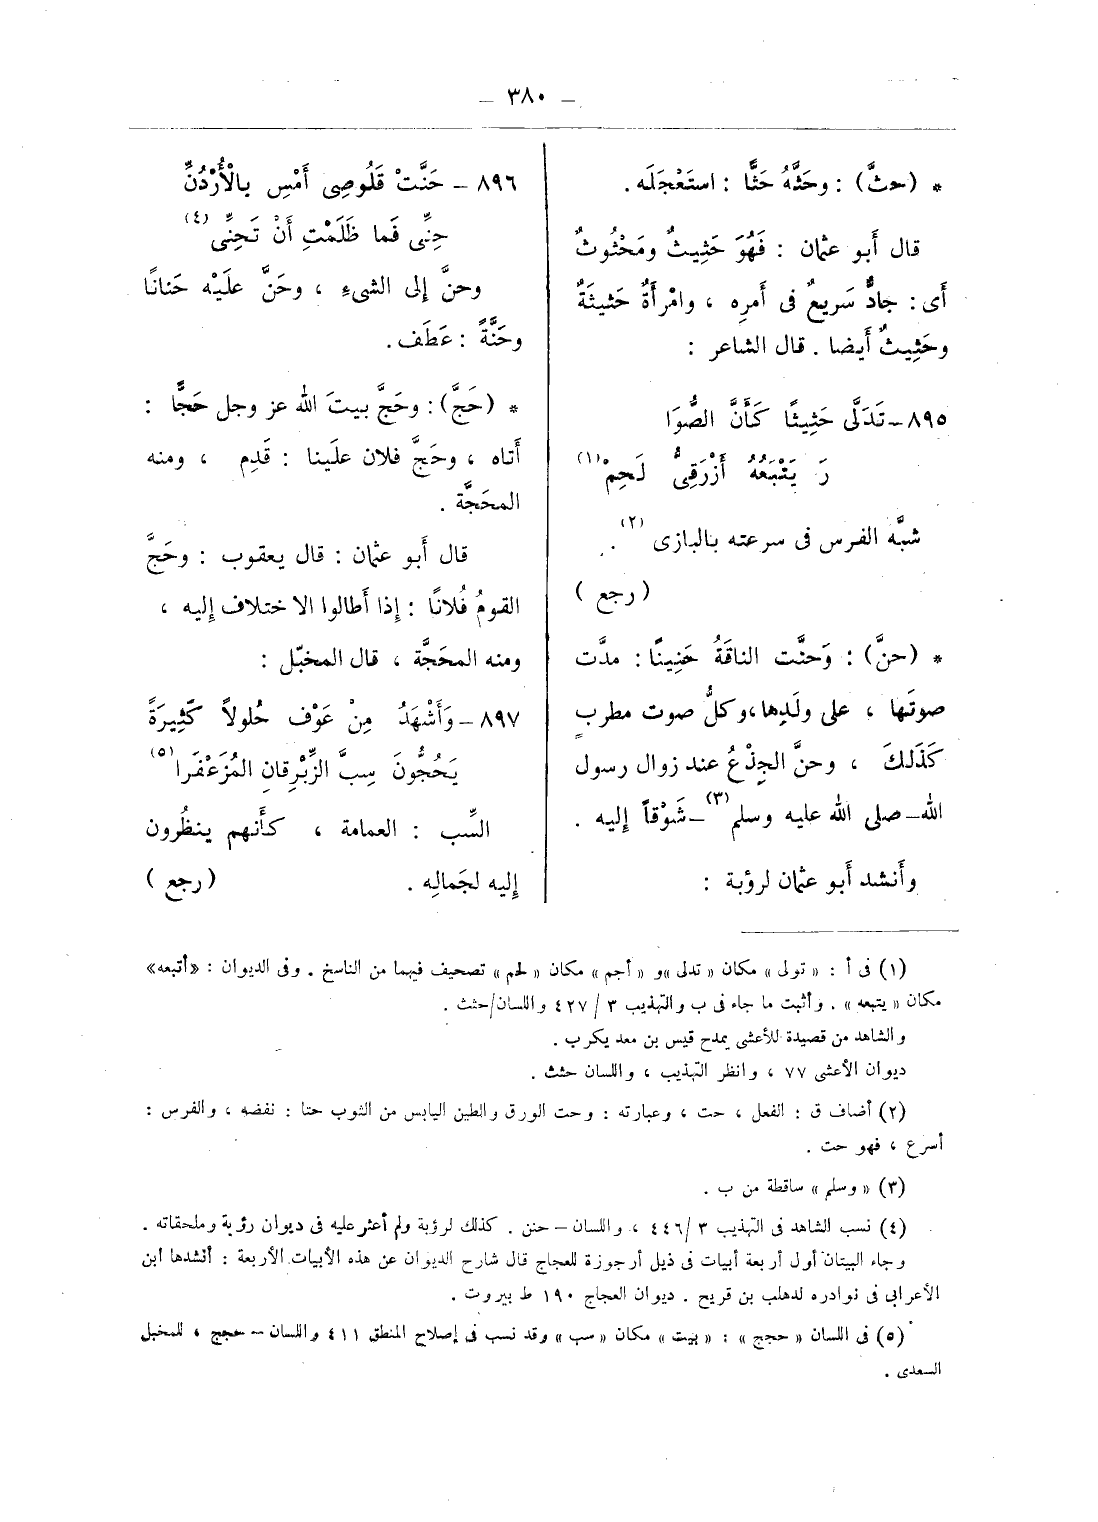 — ٣٨٠ —
* (حثَّ) : وحَثَّهُ حَثًّا : استَعْجَلَه .
قال أَبو عثمان : فَهُوَ حَثِيثٌ ومَحْثُوثٌ
أَى : جادٌّ سَرِيعٌ فى أَمرِه ، وامْرأَةٌ حَثيثَةٌ
وحَثِيثٌ أَيضا . قال الشاعر :
٨٩٥ – تَدَلَّى حَثِيثًا كَأَنَّ الصُّوَا
رَ يَتْبَعُهُ أَزْرَقِىٌّ لَحِمْ (١)
شبَّه الفرس فى سرعته بالبازى (٢) .
( رجع )
* (حنَّ) : وَحَنَّت الناقَةُ حَنِينًا : مدَّت
صوتَها ، على ولَدِها ، وكلُّ صوت مطربٍ
كَذَلكَ ، وحنَّ الجِذْعُ عند زوال رسول
الله – صلى الله عليه وسلم (٣) – شَوْقاً إليه .
وأَنشد أَبو عثمان لرؤبة :
٨٩٦ – حَنَّتْ قَلُوصِى أَمْسِ بالْأُرْدُنِّ
حِنِّى فَما ظَلَمْتِ أَنْ تَحِنِّى (٤)
وحنَّ إلى الشىءِ ، وحَنَّ علَيْه حَنانًا
وحَنَّةً : عَطَف .
* (حَجَّ) : وحَجَّ بيتَ الله عز وجل حَجًّا :
أَتاه ، وحَجَّ فلان علَينا : قَدِم ، ومنه
المحَجَّة .
قال أَبو عثمان : قال يعقوب : وحَجَّ
القومُ فُلانًا : إذا أَطالوا الاختلاف إليه ،
ومنه المحَجَّة ، قال المخبّل :
٨٩٧ – وَأَشْهَدُ مِنْ عَوْف حُلولاً كَثِيرَةً
يَحُجُّونَ سِبَّ الزِّبْرِقانِ المُزَعْفَرا (٥)
السِّب : العمامة ، كأَنهم ينظُرون
إليه لجَمالِه . ( رجع )
(١) فى أ : « تولى » مكان « تدلى » و « أجم » مكان « لحم » تصحيف فيهما من الناسخ . وفى الديوان : « أتبعه »
مكان « يتبعه » . وأثبت ما جاء فى ب والتهذيب ٣ / ٤٢٧ واللسان/حثث .
والشاهد من قصيدة للأعشى يمدح قيس بن معد يكرب .
ديوان الأعشى ٧٧ ، وانظر التهذيب ، واللسان حثث .
(٢) أضاف ق : الفعل ، حت ، وعبارته : وحت الورق والطين اليابس من الثوب حتا : نفضه ، والفرس :
أسرع ، فهو حت .
(٣) « وسلم » ساقطة من ب .
(٤) نسب الشاهد فى التهذيب ٣ /٤٤٦ ، واللسان – حنن . كذلك لرؤبة ولم أعثر عليه فى ديوان رؤبة وملحقاته .
وجاء البيتان أول أربعة أبيات فى ذيل أرجوزة للعجاج قال شارح الديوان عن هذه الأبيات الأربعة : أنشدها ابن
الأعرابى فى نوادره لدهلب بن قريح . ديوان العجاج ١٩٠ ط بيروت .
(٥) فى اللسان « حجج » : « بيت » مكان « سب » وقد نسب فى إصلاح المنطق ٤١١ واللسان – حجج ، للمخبل
السعدى .